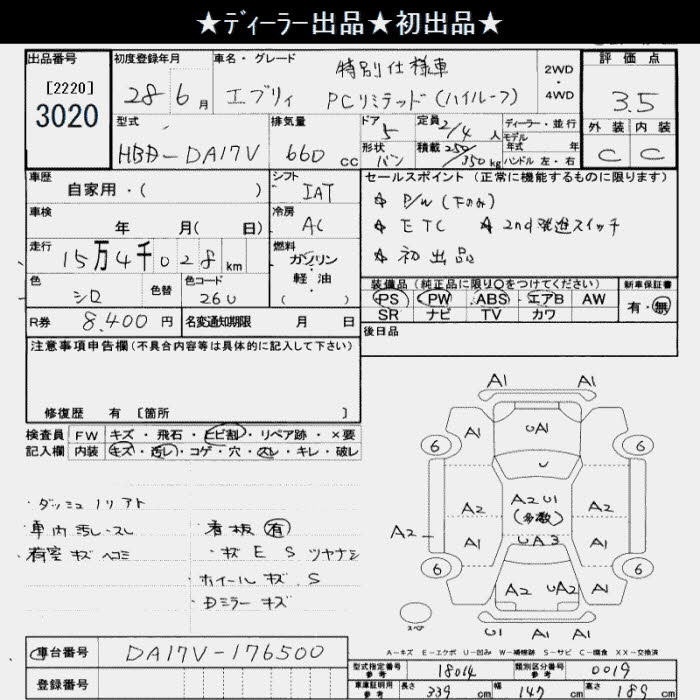 ★ディーラー出品★初出品★
出品番号 初度登録年月 車名・グレード 特別仕様車 2WD・4WD 評価点
[2220]
3020
28 6月 エブリィ PCリミテッド(ハイルーフ) 3.5
型式 排気量 ドア 5 定員 2/4人 ディーラー・並行 外装 内装
モデル年式 年
HBD-DA17V 660cc 形状 バン 積載 250/350kg ハンドル 左・右 C C
車歴 自家用・( ) シフト IAT セールスポイント(正常に機能するものに限ります)
☆ P/W(下のみ)
車検 年 月(日) 冷房 AC ☆ ETC ☆ 2nd発進スイッチ
走行 15万4千028km 燃料 ガソリン・軽油・( ) ☆ 初出品
色 シロ 色替 色コード 26U 装備品(純正品に限り○をつけてください) 新車保証書
PS PW ABS エアB AW 有・無
SR ナビ TV カワ
R券 8,400円 名変通知期限 月 日 後日品
注意事項申告欄(不具合内容等は具体的に記入して下さい)
修復歴 有 [箇所 ]
検査員 FW キズ・飛石・ヒビ割・リペア跡・×要
記入欄 内装 キズ・汚レ・コゲ・穴・スレ・キレ・破レ
・ダッシュノリアト
・車内汚レ・スレ 看板 有
・荷室キズヘコミ ・キズ E S ツヤナシ
・ホイールキズ、S
・Dミラーキズ
A1 A1
6 A1 UA1 A1 6
U
A2 A2 U1 A2
(多数)
A2 A1 UA3 A1
6 A2 UA2 A1 6
スペア U1 A1 A1
A-キズ E-エクボ U-凹み W-補修跡 S-サビ C-腐食 XX-交換済
車台番号 DA17V-176500
登録番号
型式指定番号 参考 18014 類別区分番号 参考 0019
車庫証明用 参考 長さ 339cm 幅 147cm 高さ 189cm